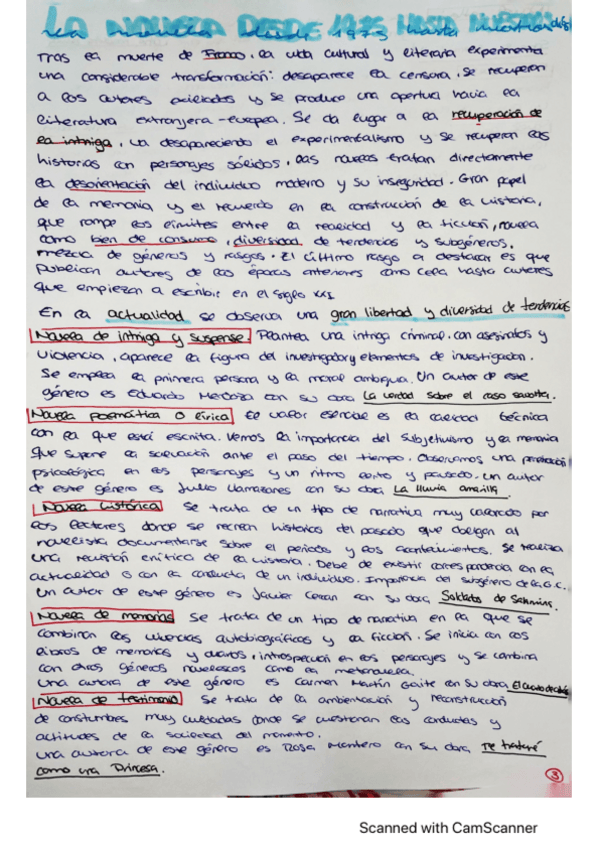 LA NOVELA DESDE 1975 HASTA NUESTROS días
Tras la muerte de Franco, la vida cultural y literaria experimenta
una considerable transformación: desaparece la censura, se recuperan
a los autores exiliados y se produce una apertura hacia la
literatura extranjera-europea. Se da lugar a la recuperación de
la intriga, va desapareciendo el experimentalismo y se recuperan las
historias con personajes sólidos. Las novelas tratan directamente
la desorientación del individuo moderno y su inseguridad. Gran papel
de la memoria y el recuerdo en la construcción de la historia,
que rompe los límites entre la realidad y la ficción, novela
como bien de consumo, diversidad de tendencias y subgéneros,
mezcla de géneros y rasgos. El último rasgo a destacar es que
publican autores de las épocas anteriores como Cela hasta autores
que empiezan a escribir en el siglo XXI.
En la actualidad se observa una gran libertad y diversidad de tendencias
Novela de intriga y suspense. Plantea una intriga criminal con asesinatos y
violencia, aparece la figura del investigador y elementos de investigación.
Se emplea la primera persona y la moral ambigua. Un autor de este
género es Eduardo Mendoza con su obra La verdad sobre el caso savolta.
Novela poemática o lírica El valor esencial es la calidad técnica
con la que está escrita. Vemos la importancia del subjetivismo y la memoria
que supone la salvación ante el paso del tiempo. Observamos una penetración
psicológica en los personajes y un ritmo lento y pausado. Un autor
de este género es Julio Llamazares con su obra La lluvia amarilla.
Novela histórica Se trata de un tipo de narrativa muy valorado por
los lectores donde se recrean historias del pasado que obligan al
novelista documentarse sobre el periodo y los acontecimientos. Se realiza
una revisión crítica de la historia. Debe de existir correspondencia con la
actualidad o con la conducta de un individuo. Importancia del subgénero de la G.C.
Un autor de este género es Javier Cercas con su obra Soldados de Salamina.
Novela de memorias Se trata de un tipo de narrativa en la que se
combinan las vivencias autobiográficas y la ficción. Se inicia con los
libros de memorias y diarios, introspección en los personajes y se combina
con otros géneros novelescos como la metanovela.
Una autora de este género es Carmen Martín Gaite con su obra El cuarto de atrás
Novela de testimonio Se trata de la ambientación y reconstrucción
de constumbres muy cuidadas donde se cuestionan las conductas y
actitudes de la sociedad del momento.
una autora de este género es Rosa Montero con su obra Te trataré
como una Princesa.
3
Scanned with CamScanner